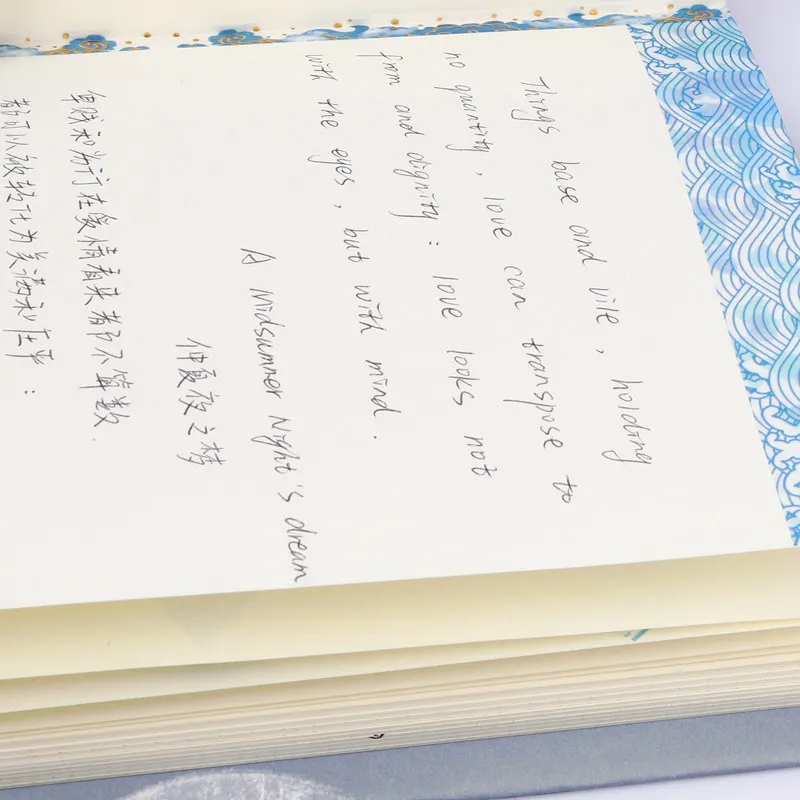 Things base and vile, holding
no quantity, love can transpose to
from and dignity: love looks not
with the eyes, but with mind.
A Midsummer Night's dream
仲夏夜之梦
卑贱和劣行在爱情看来都不算数.
都可以被转化为美满和庄严: